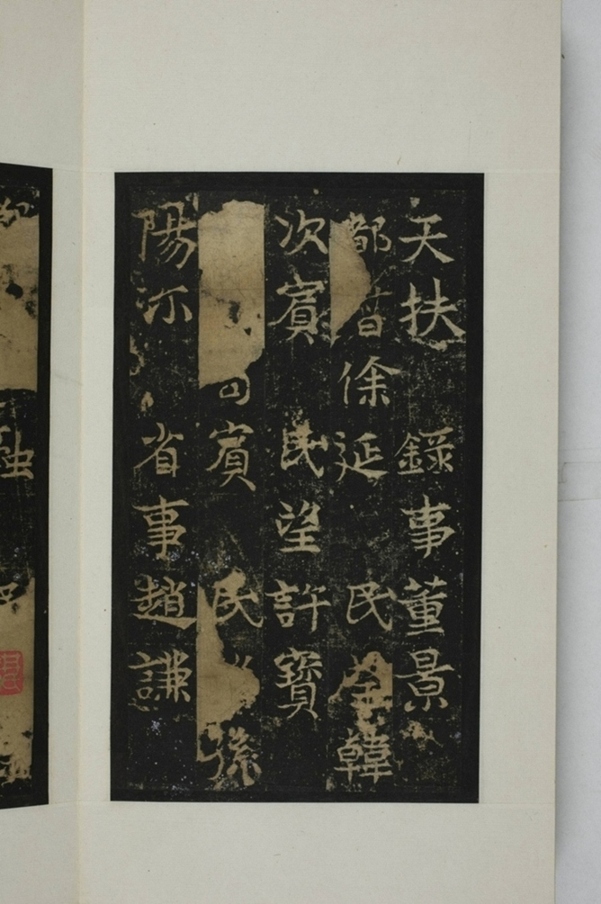 天扶 錄事董景
都 徐延 民 韓
次賓 民望許寶
司賓 民 孫
陽沵 省事趙謙